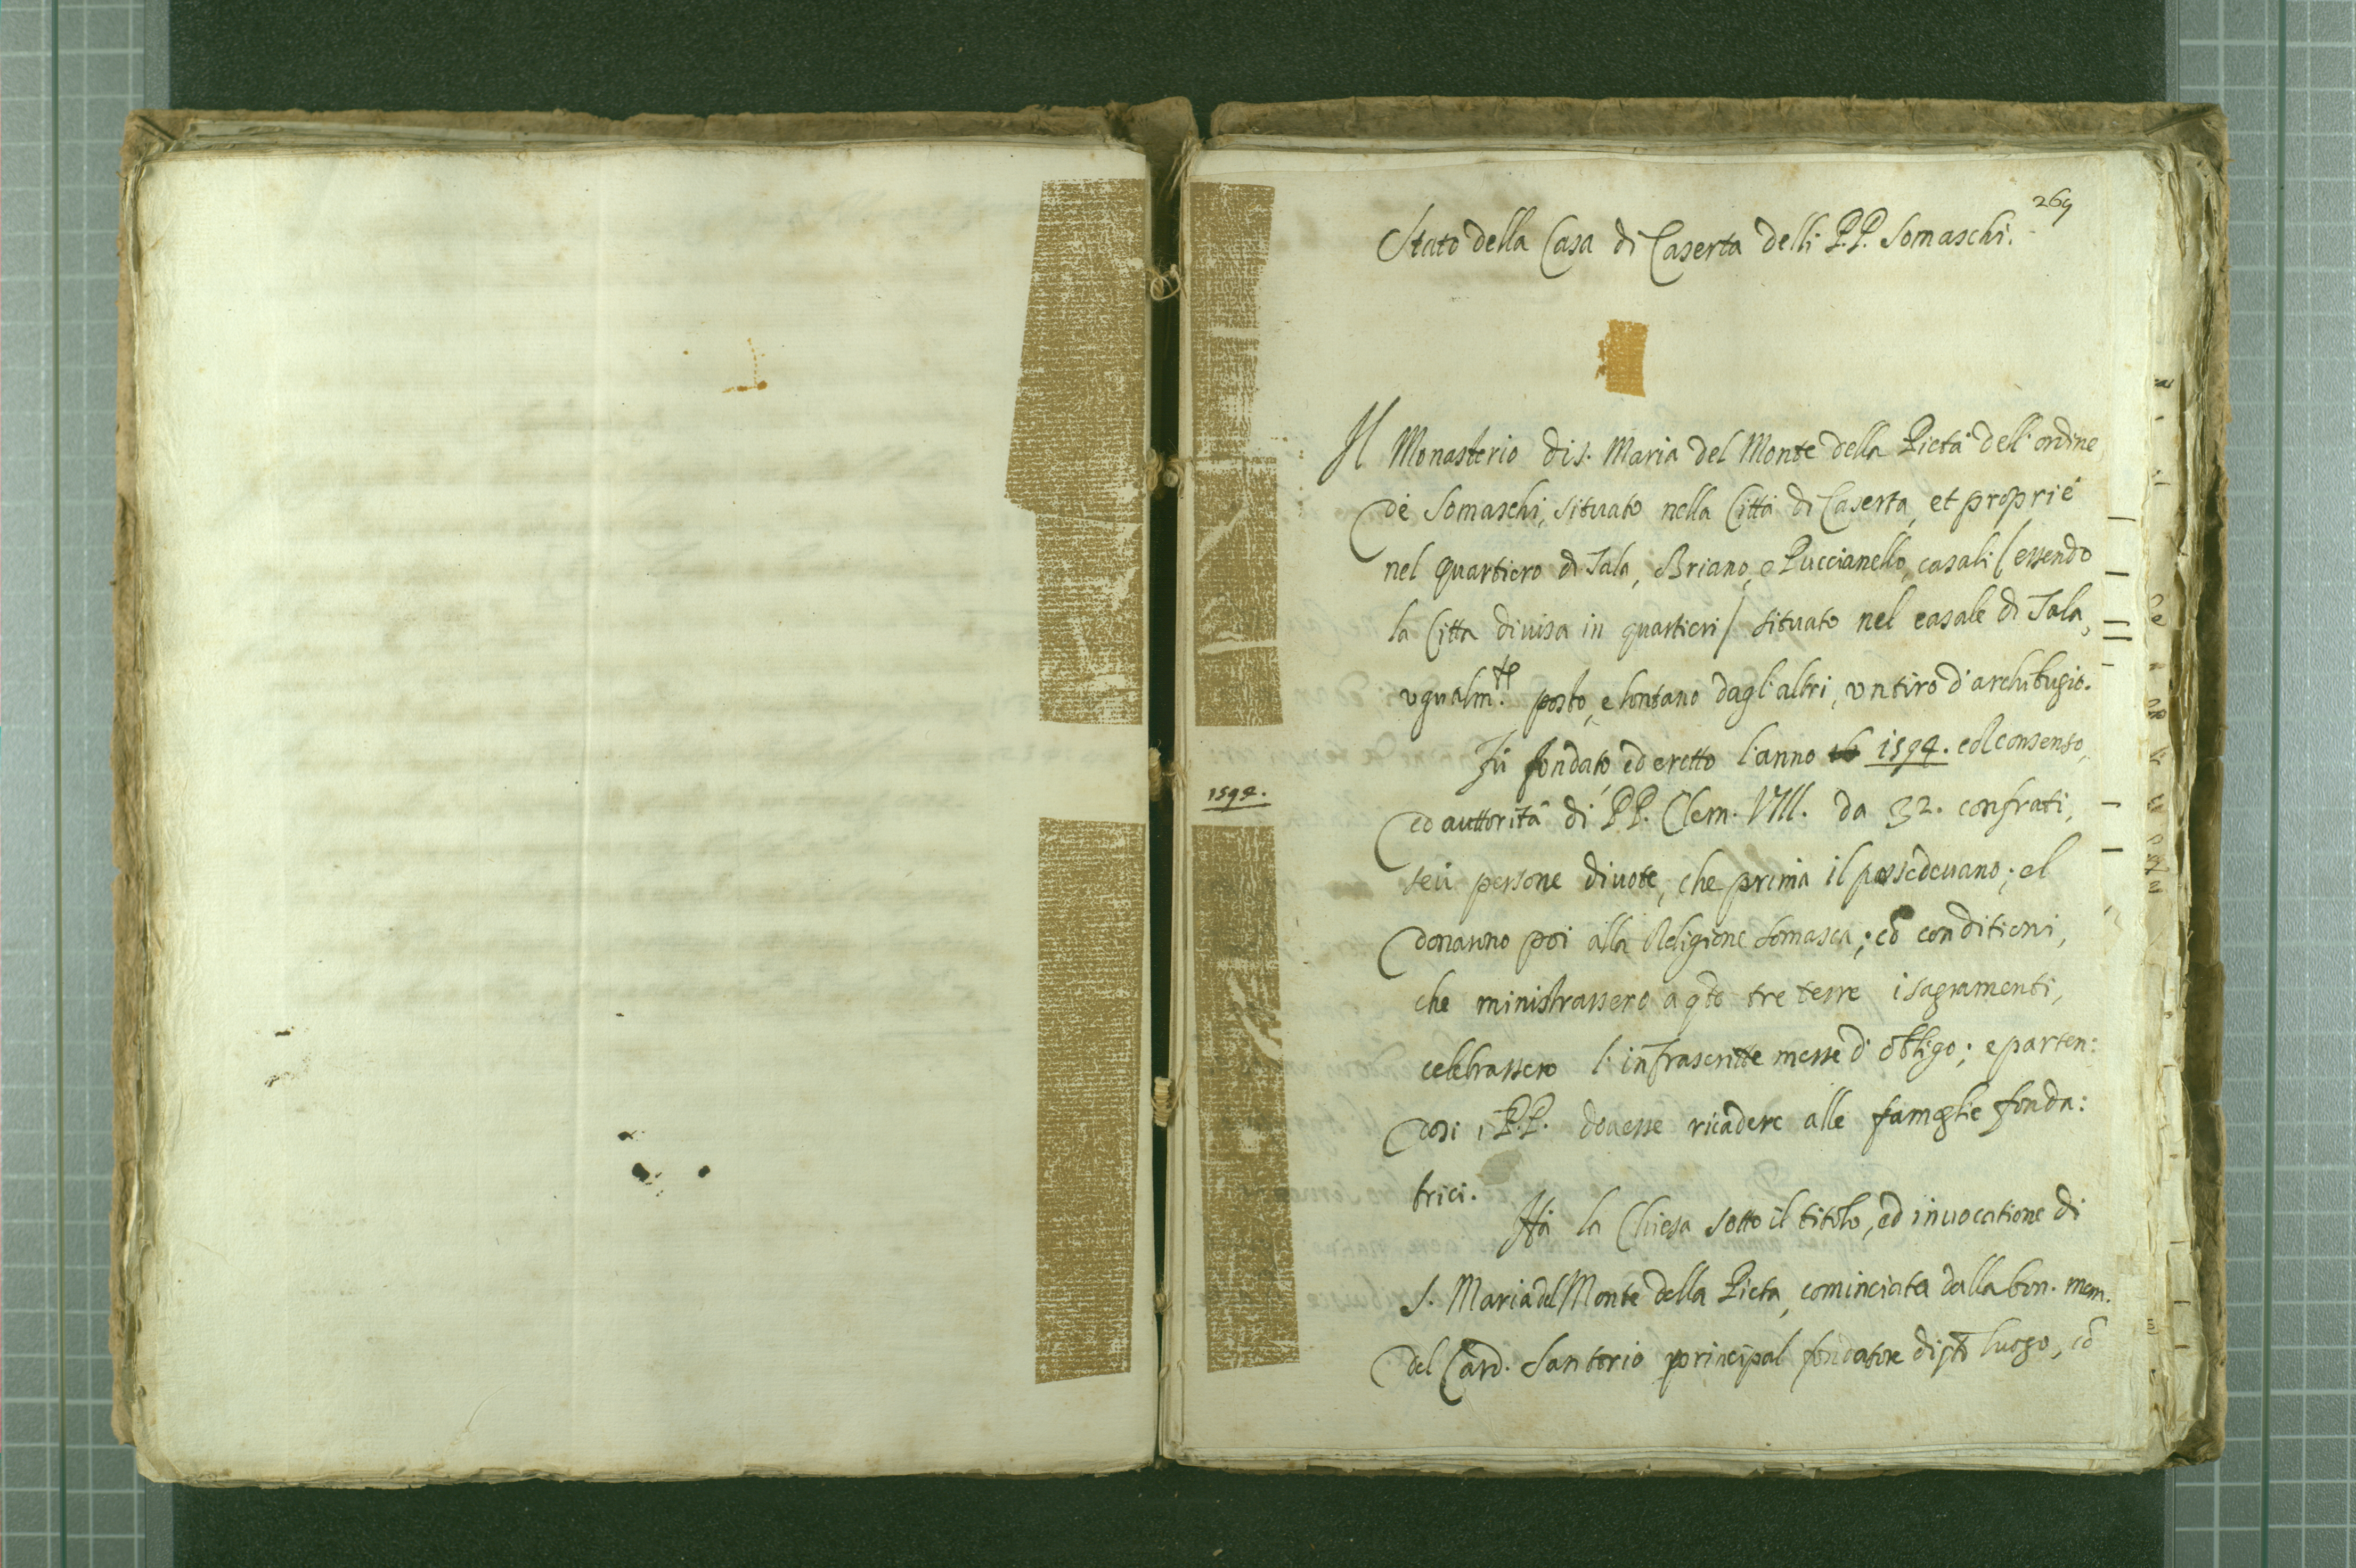 269
Stato della Casa di Caserta delli P.P. Somaschi.
Il Monasterio di S. Maria del Monte della Pietà dell'ordine
de Somaschi, situato nella Città di Caserta, et proprie
nel quartiero di Sala, Briano, e Puccianello, casali (essendo
la Citta divisa in quartieri) situato nel casale di Sala,
ugualm.te posto, e lontano dagl'altri, un tiro d'archibugio.
Fù fondato, ed eretto l'anno 1594. col consenso,
1594.
ed auttorità di PP. Clem. VIII. da 32. confrati,
seù persone divote, che prima il possedevano; el
donanno poi alla Religione Somasca; cō conditioni,
che ministrassero a qste tre terre i sagramenti,
celebrassero l'infrascritte messe d'obligo; e parten:
dosi i P.P. dovesse ricadere alle famiglie fonda:
trici.
Hà la Chiesa sotto il titolo, ed invocatione di
S. Maria del Monte della Pieta, cominciata dalla bon. mem.
del Card. Santorio principal fondatore di qto luogo, cō